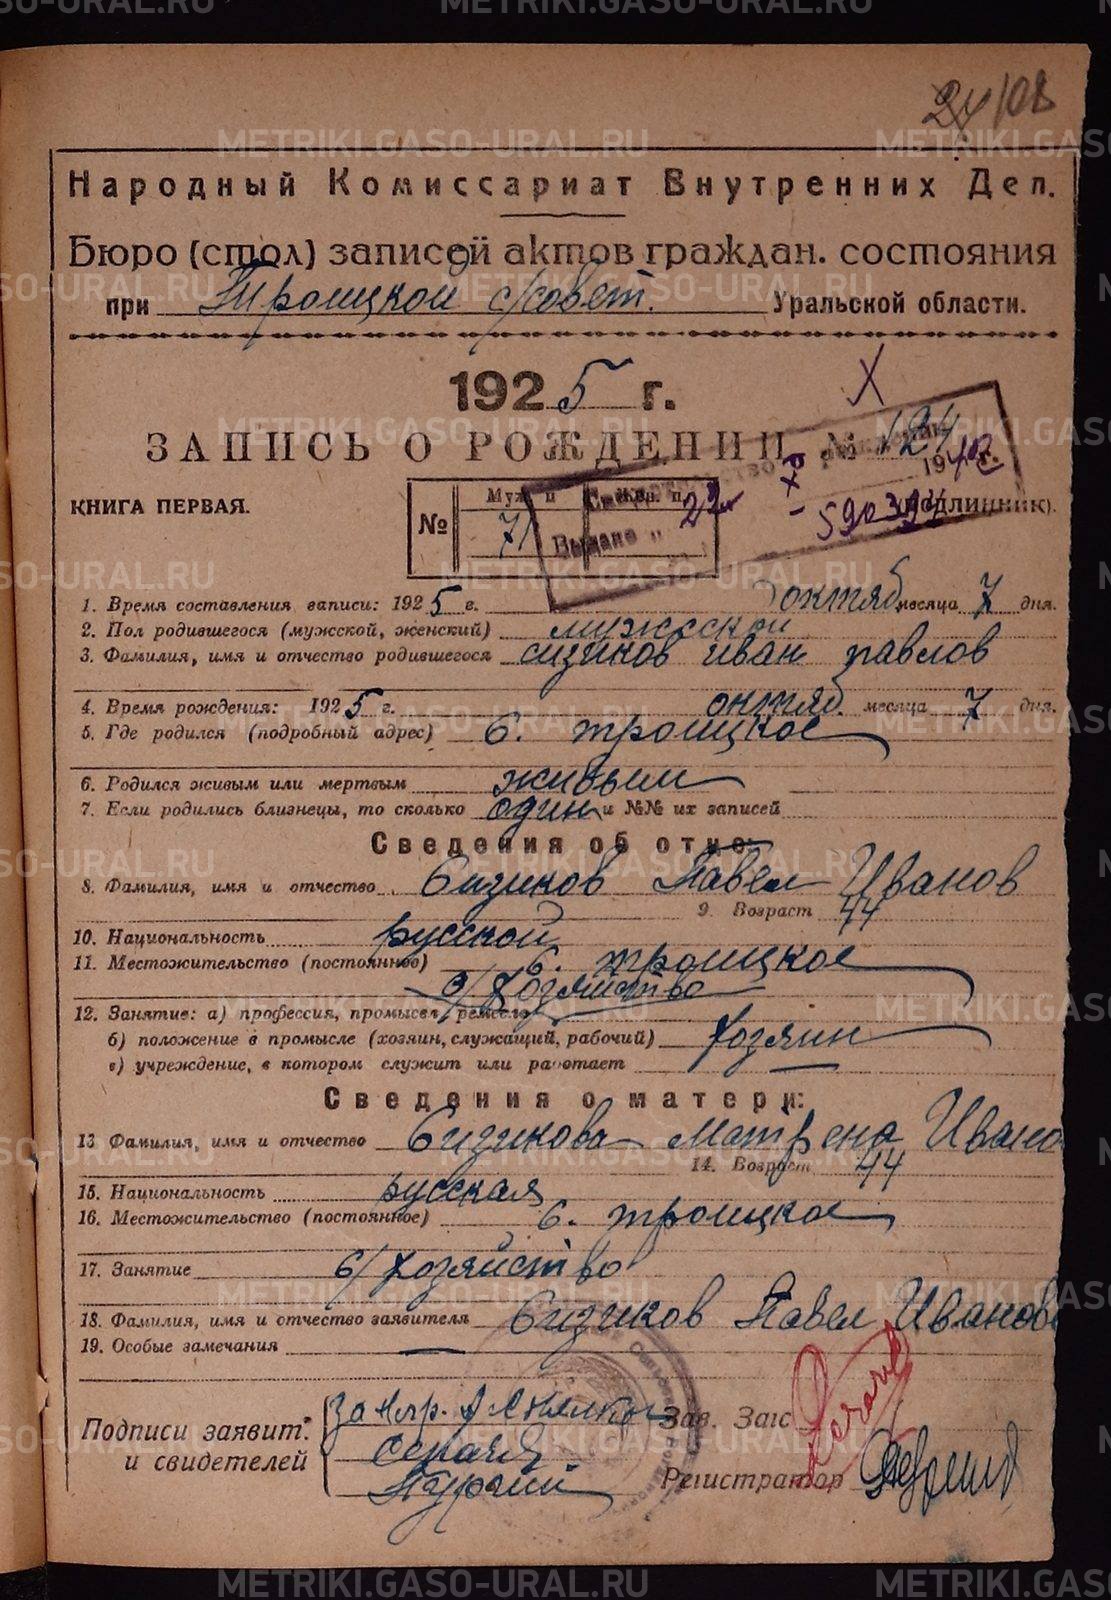 METRIKI.GASO-URAL.RU
Народный Комиссариат Внутренних Дел.
Бюро (стол) записей актов граждан. состояния
при Троицкой с/совет. Уральской области.
1925 г.
ЗАПИСЬ О РОЖДЕНИИ № 124
КНИГА ПЕРВАЯ. (подлинник).
№ Муж. п Жен. п.
71
Выдано " 22
590394
1. Время составления записи: 1925 г. октяб. месяца 7 дня.
2. Пол родившегося (мужской, женский) мужской
3. Фамилия, имя и отчество родившегося Сизиков Иван Павлов
4. Время рождения: 1925 г. октяб. месяца 7 дня.
5. Где родился (подробный адрес) С. Троицкое
6. Родился живым или мертвым живым
7. Если родились близнецы, то сколько один и №№ их записей
Сведения об отце:
8. Фамилия, имя и отчество Сизиков Павел Иванов
9. Возраст 44
10. Национальность русской
11. Местожительство (постоянное) С. Троицкое
С/Хозяйство
12. Занятие: а) профессия, промысел, ремесло
б) положение в промысле (хозяин, служащий, рабочий) Хозяин
в) учреждение, в котором служит или работает
Сведения о матери:
13 Фамилия, имя и отчество Сизикова Матрена Ивано
14. Возраст 44
15. Национальность русская
16. Местожительство (постоянное) С. Троицкое
17. Занятие С/Хозяйство
18. Фамилия, имя и отчество заявителя Сизиков Павел Иванов
19. Особые замечания
Подписи заявит. и свидетелей
Зав. Загс
Регистратор